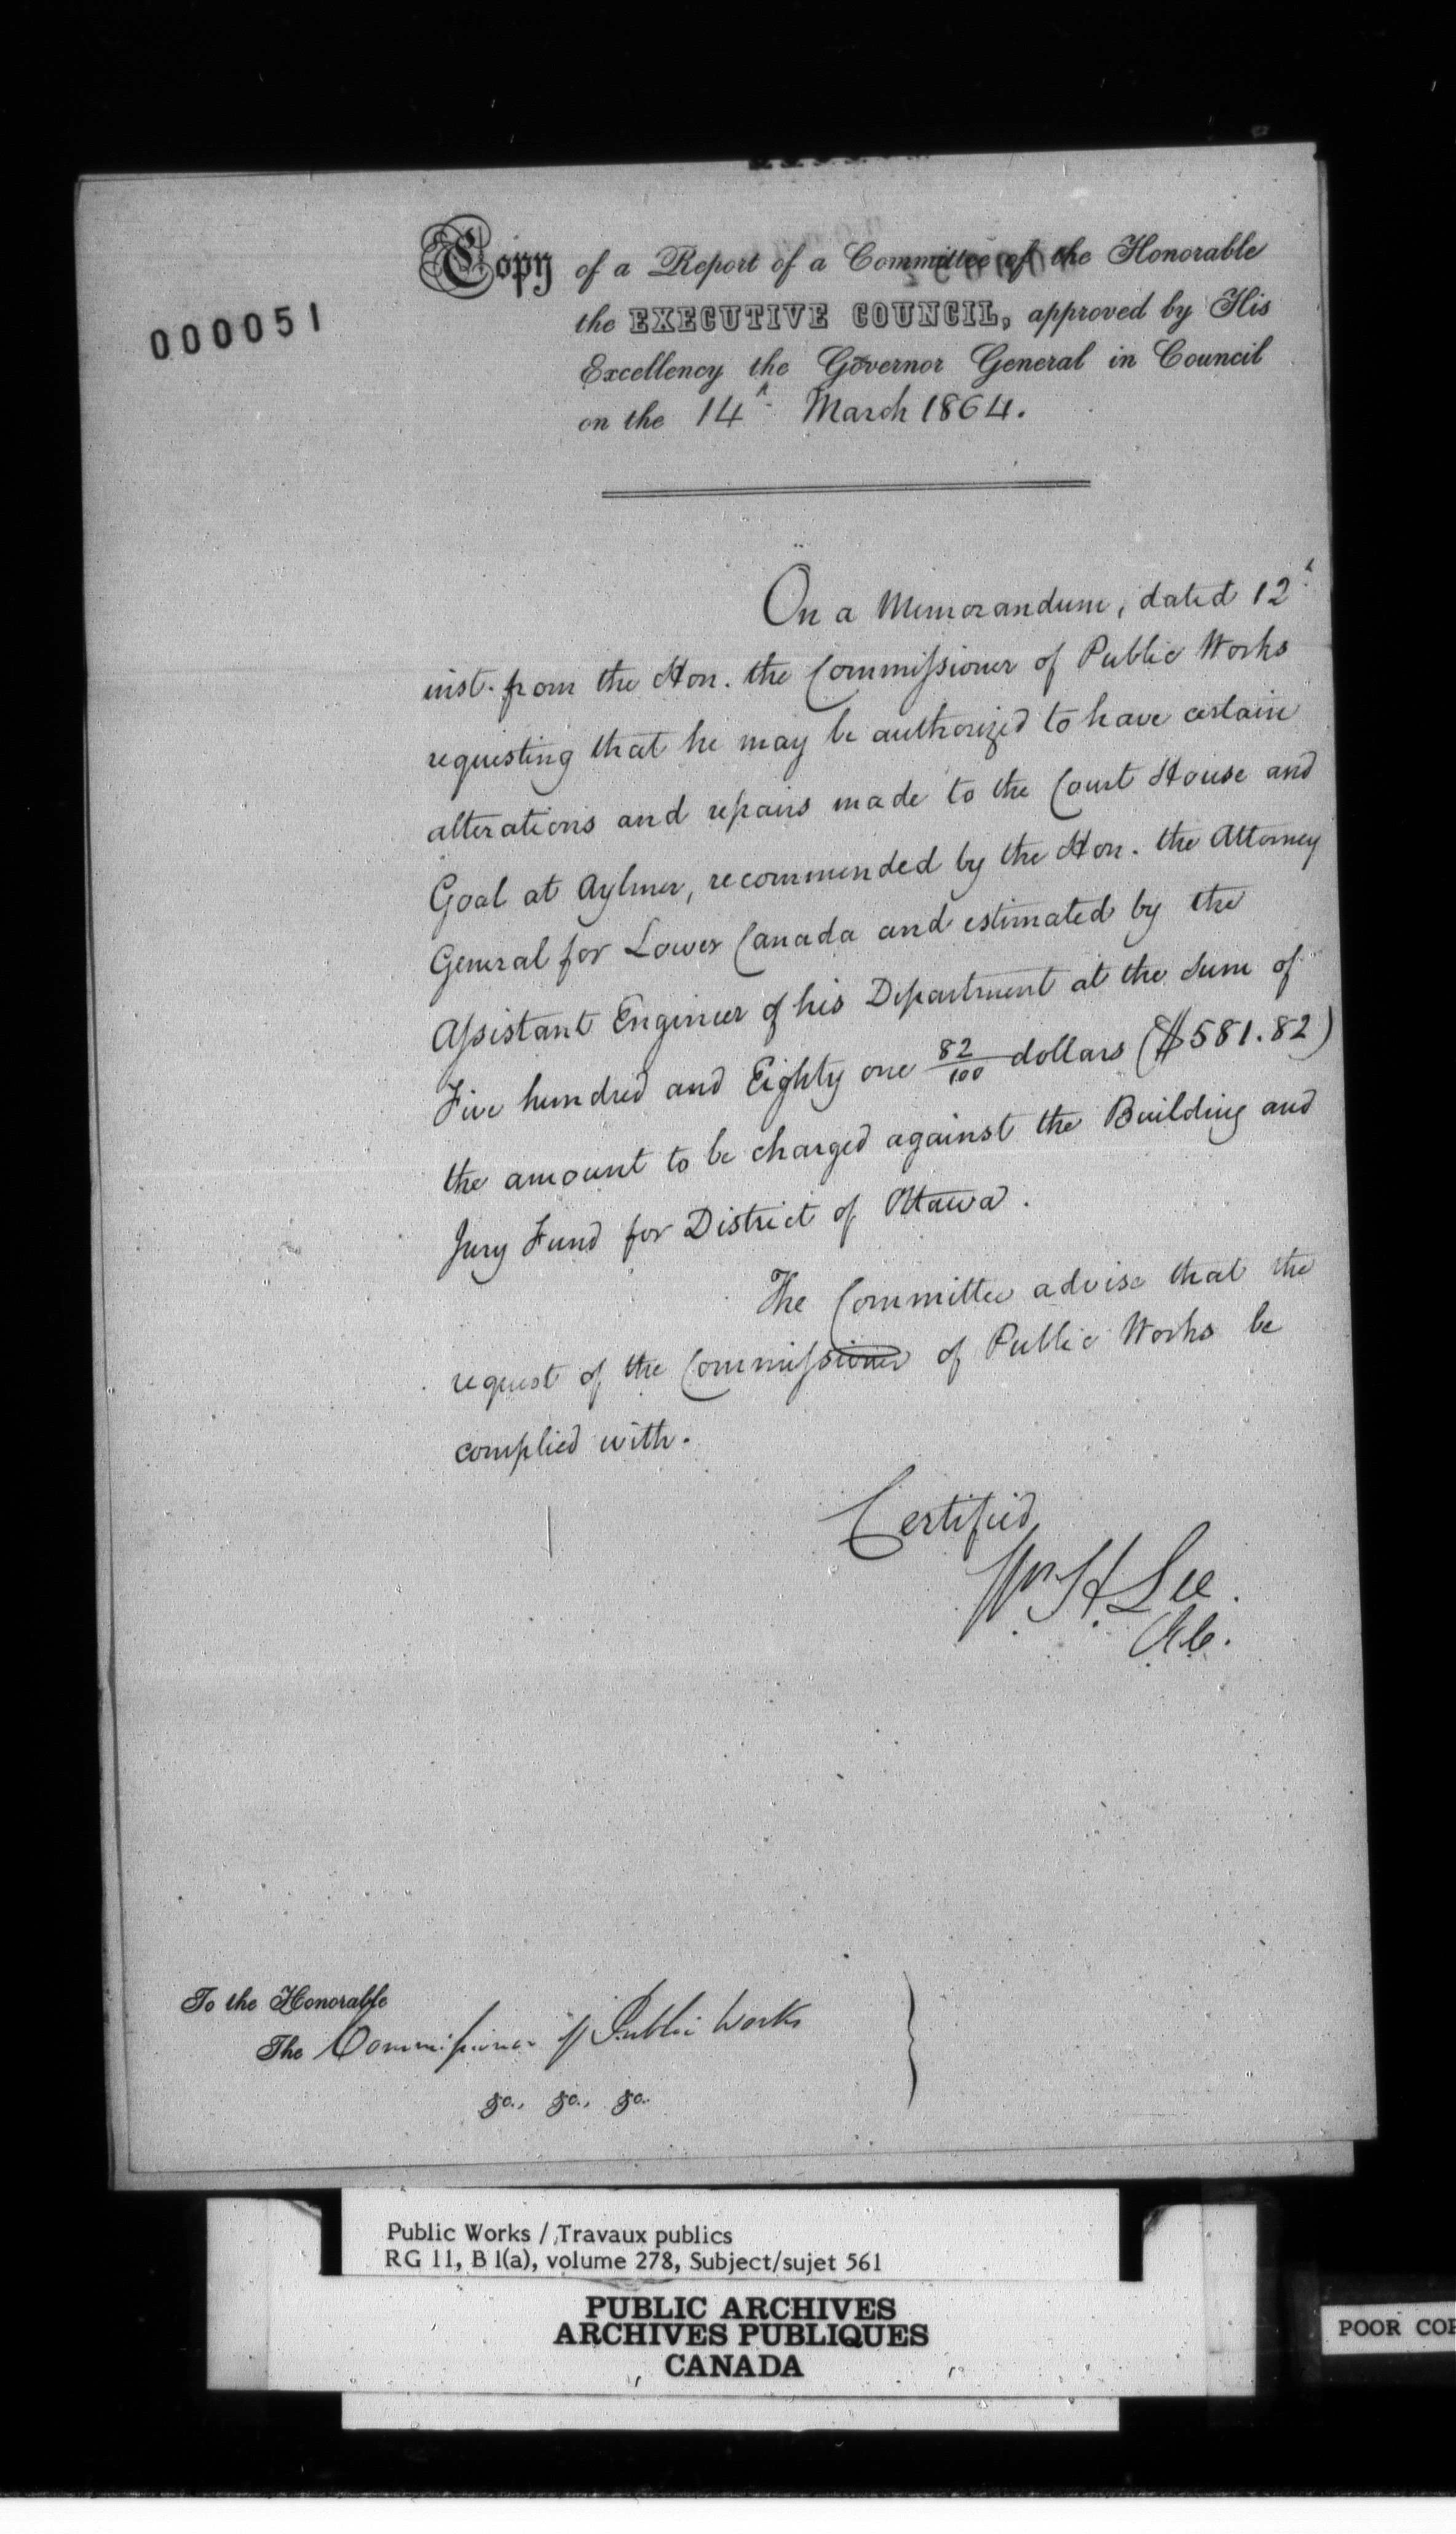 000051
Copy of a Report of a Committee of the Honorable
the EXECUTIVE COUNCIL, approved by His
Excellency the Governor General in Council
on the 14th March 1864.
On a Memorandum, dated 12th
inst. from the Hon. the Commissioner of Public Works
requesting that he may be authorized to have certain
alterations and repairs made to the Court House and
Goal at Aylmer, recommended by the Hon. the Attorney
General for Lower Canada and estimated by the
Assistant Engineer of his Department at the Sum of
Five hundred and Eighty one 82/100 dollars ($581.82)
the amount to be charged against the Building and
Jury Fund for District of Ottawa.
The Committee advise that the
request of the Commissioner of Public Works be
complied with.
Certified
Wm. H. Lee.
To the Honorable
The Commissioner of Public Works
&c., &c., &c.
Public Works / Travaux publics
RG 11, B 1(a), volume 278, Subject/sujet 561
PUBLIC ARCHIVES
ARCHIVES PUBLIQUES
CANADA
POOR COP